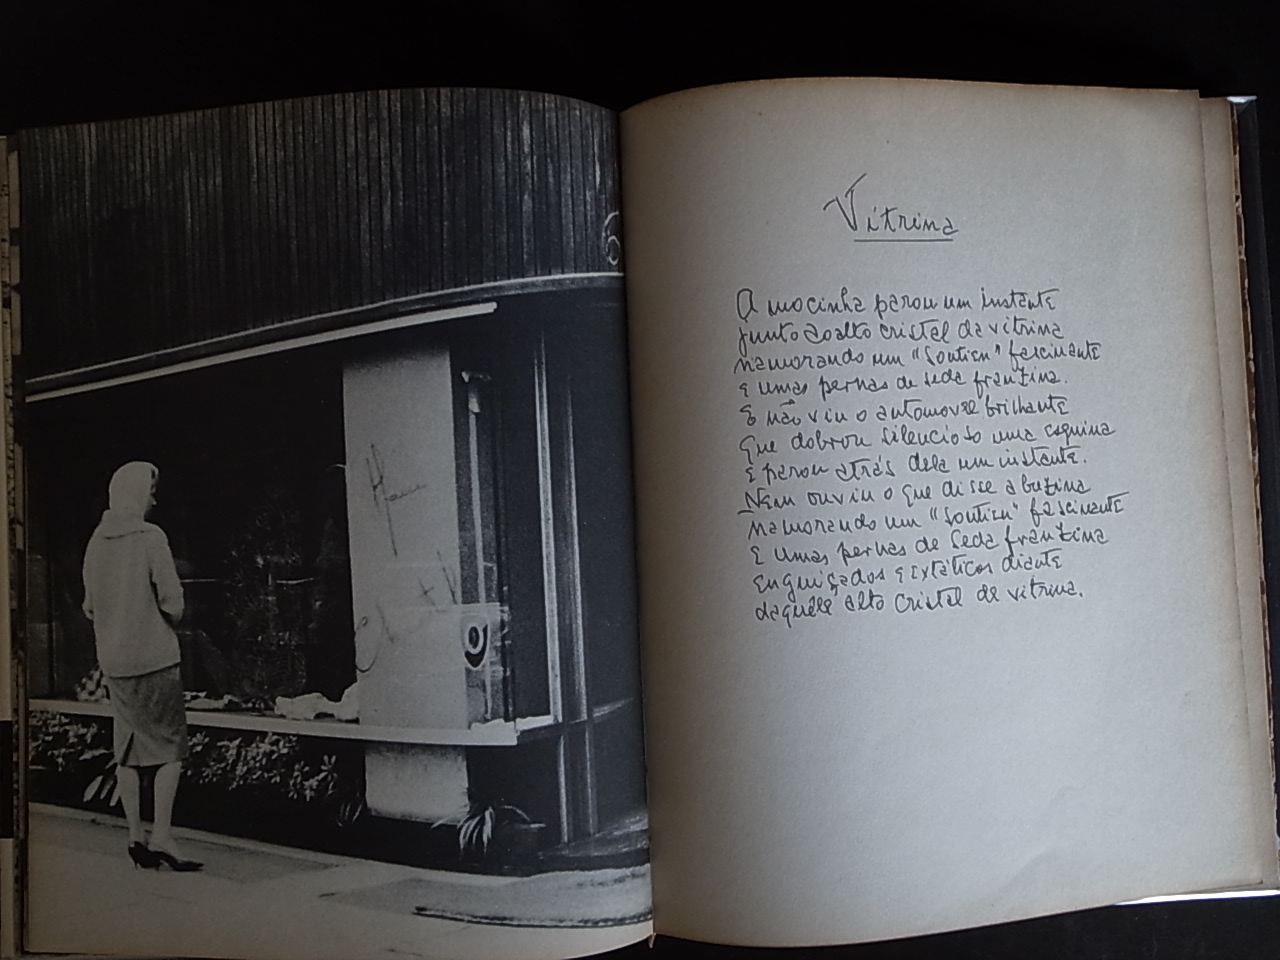 Vitrina
A mocinha parou um instante
junto ao alto cristal da vitrina
namorando um "soutien" fascinante
e umas pernas de seda franzina.
E não viu o automovel brilhante
que dobrou silencioso uma esquina
e parou atrás dela um instante.
Nem ouviu o que disse a buzina
namorando um "soutien" fascinante
e umas pernas de seda franzina
enguiçados e extáticos diante
daquele alto cristal de vitrina.
6